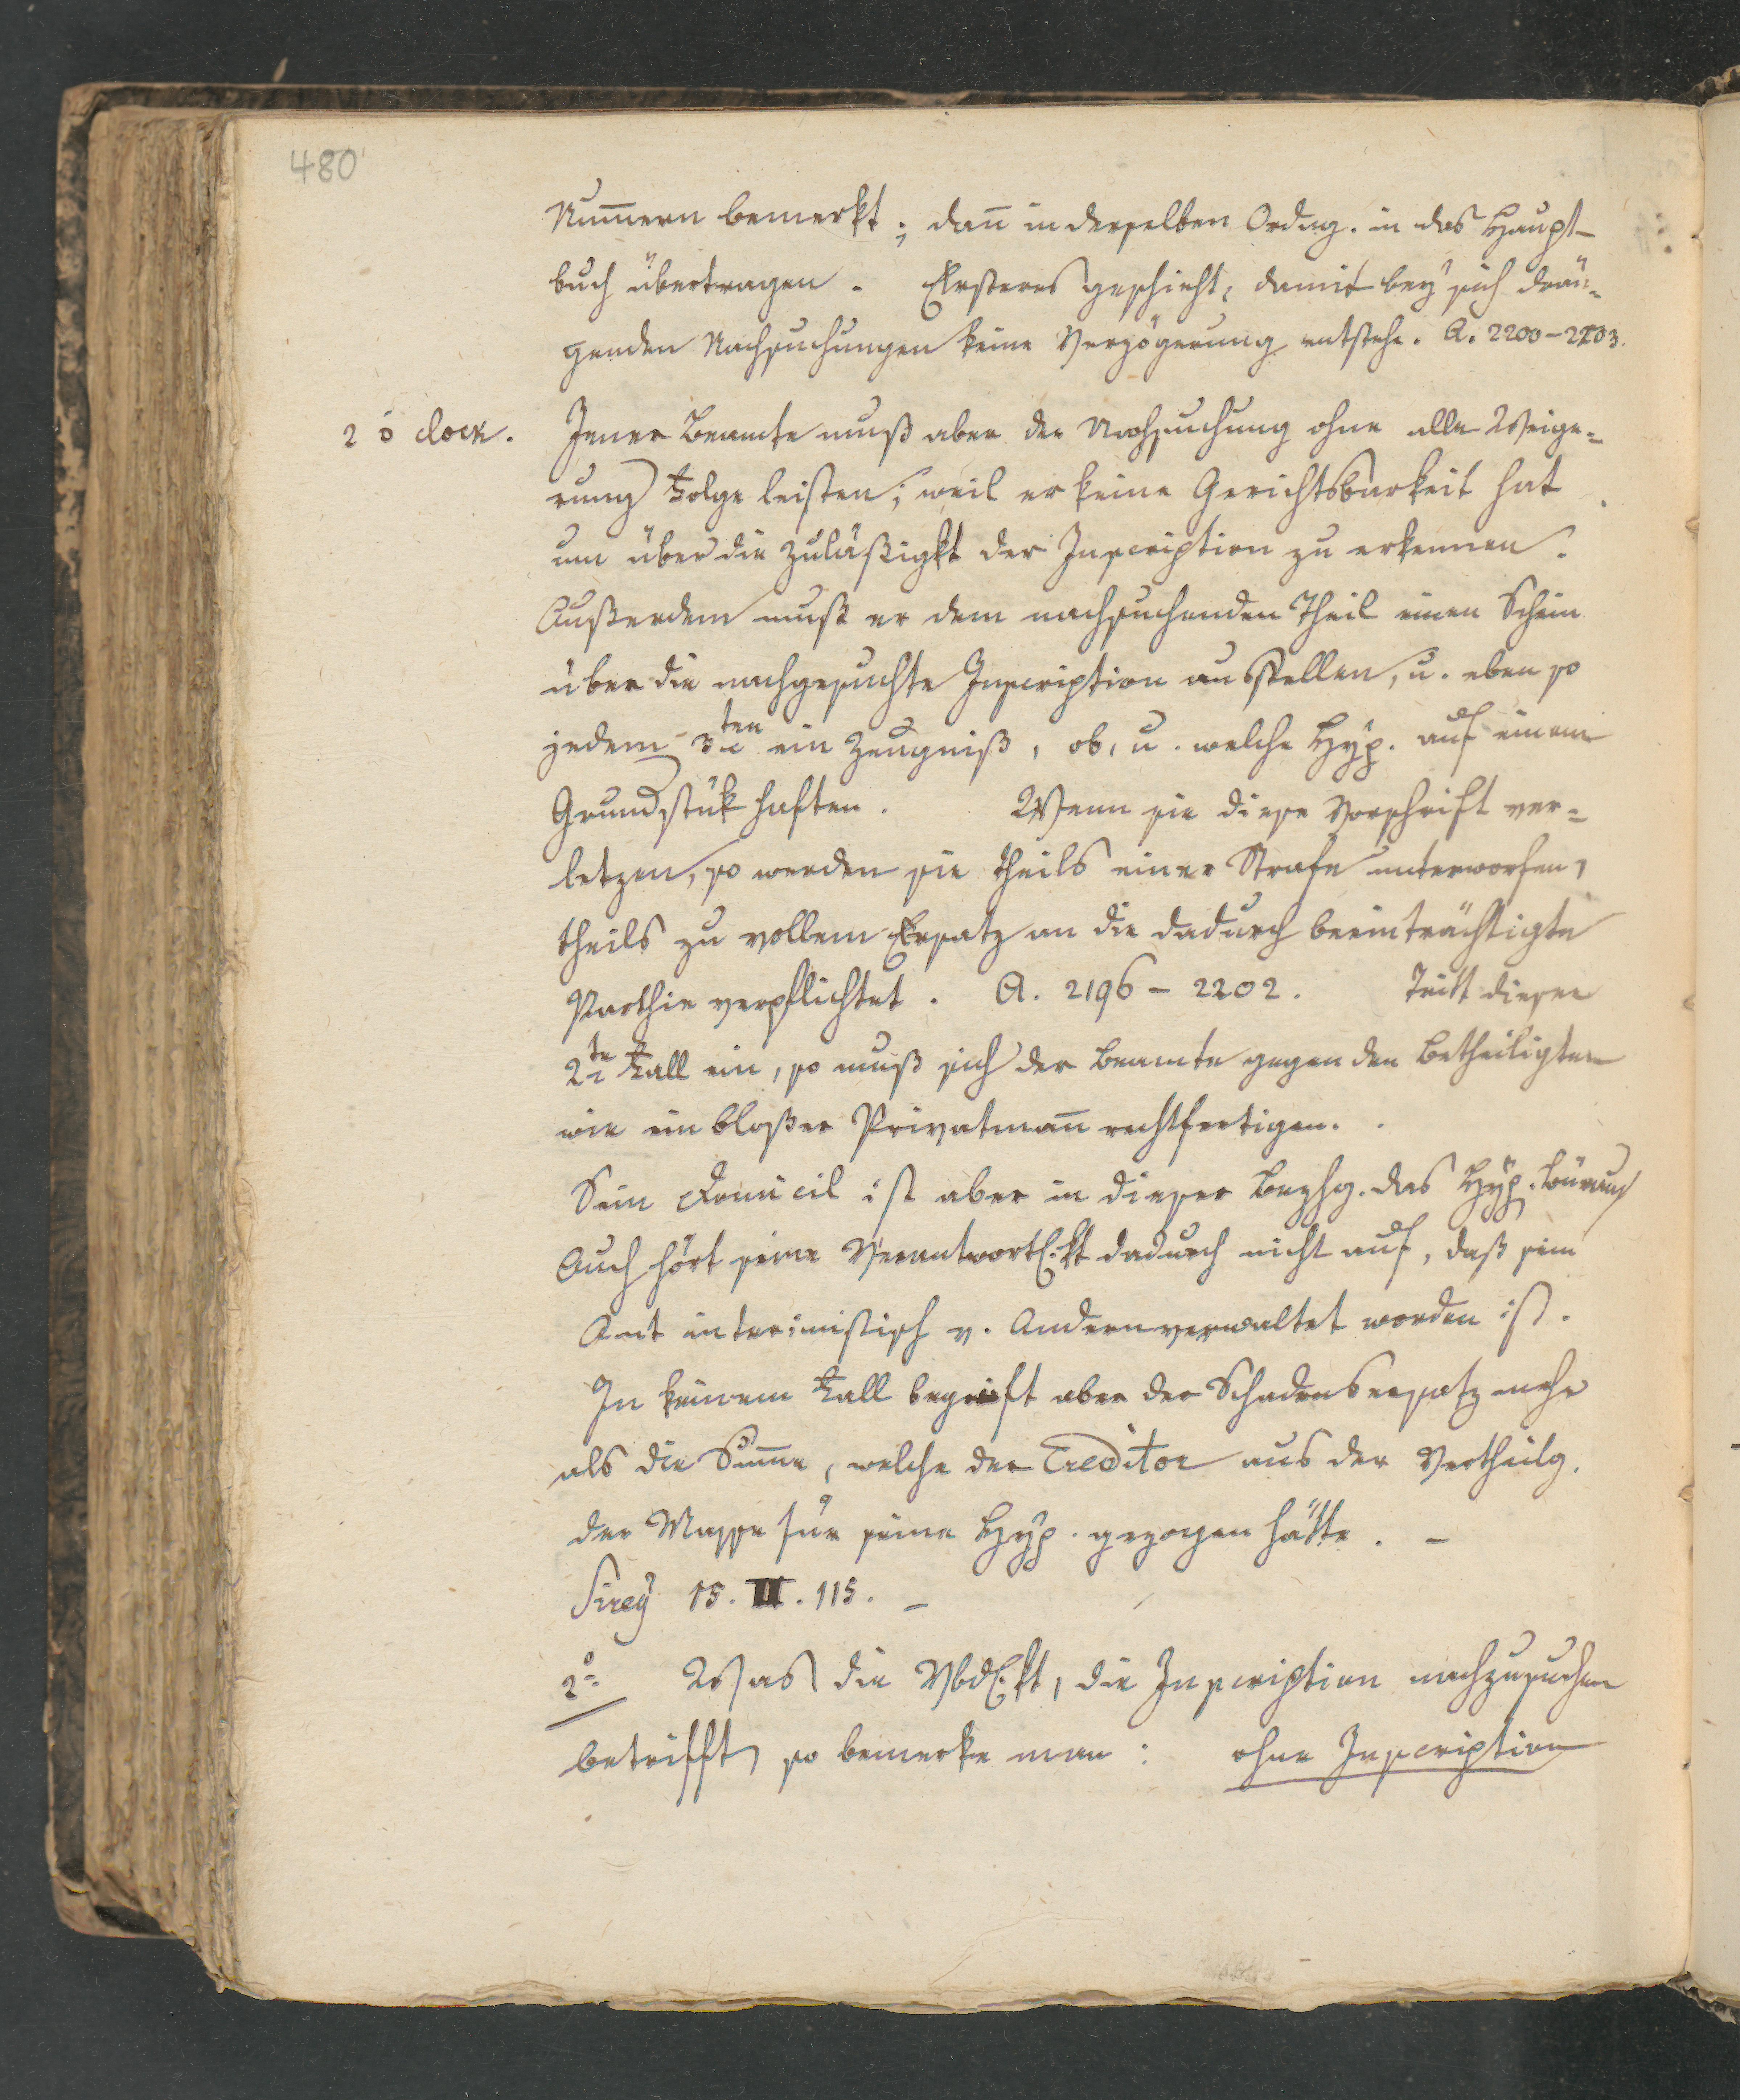 480
Num̅ern bemerkt; dan̅ in derselben Ordng. in das Haupt-
buch übertragen. Ersteres geschieht, damit bey sich drän-
genden Nachsuchungen keine Verzögerung entstehe. A. 2200-2203.
2 o clock. Jener Beamte muß aber der Nachsuchung ohne alle Weige=
rung Folge leisten; weil er keine Gerichtsbarkeit hat
um über die Zuläßigkt der Inscription zu erkennen.
Außerdem muß er dem nachsuchenden Theil einen Schein
über die nachgesuchte Inscription ausstellen, u. eben so
jedem 3ten ein Zeugniß, ob, u. welche Hyp. auf einem
Grundstük haften. Wenn sie diese Vorschrift ver=
letzen, so werden sie theils einer Strafe unterworfen,
theils zu vollem Ersatz an die dadurch beeinträchtigte
Parthie verpflichtet. A. 2196-2202. Tritt dieser
2te Fall ein, so muß sich der Beamte gegen den Betheiligten
wie ein bloßer Privatman̅ rechtfertigen.
Sein Domicil ist aber in dieser Bezhg. das Hyp. Büreau
Auch hört seine Verantwortl.kt dadurch nicht auf, daß sein
Amt interimistisch v. Andern verwaltet worden ist.
In keinem Fall begreift aber der Schadensersatz mehr
als die Sum̅e, welche der Creditor aus der Vertheilg.
der Masse für seine Hyp. gezogen hätte. -
Sirey 15. II. 115. -
2o Was die Vbdl.kt, die Inscription nachzusuchen
betrifft, so bemerke man: ohne Inscription